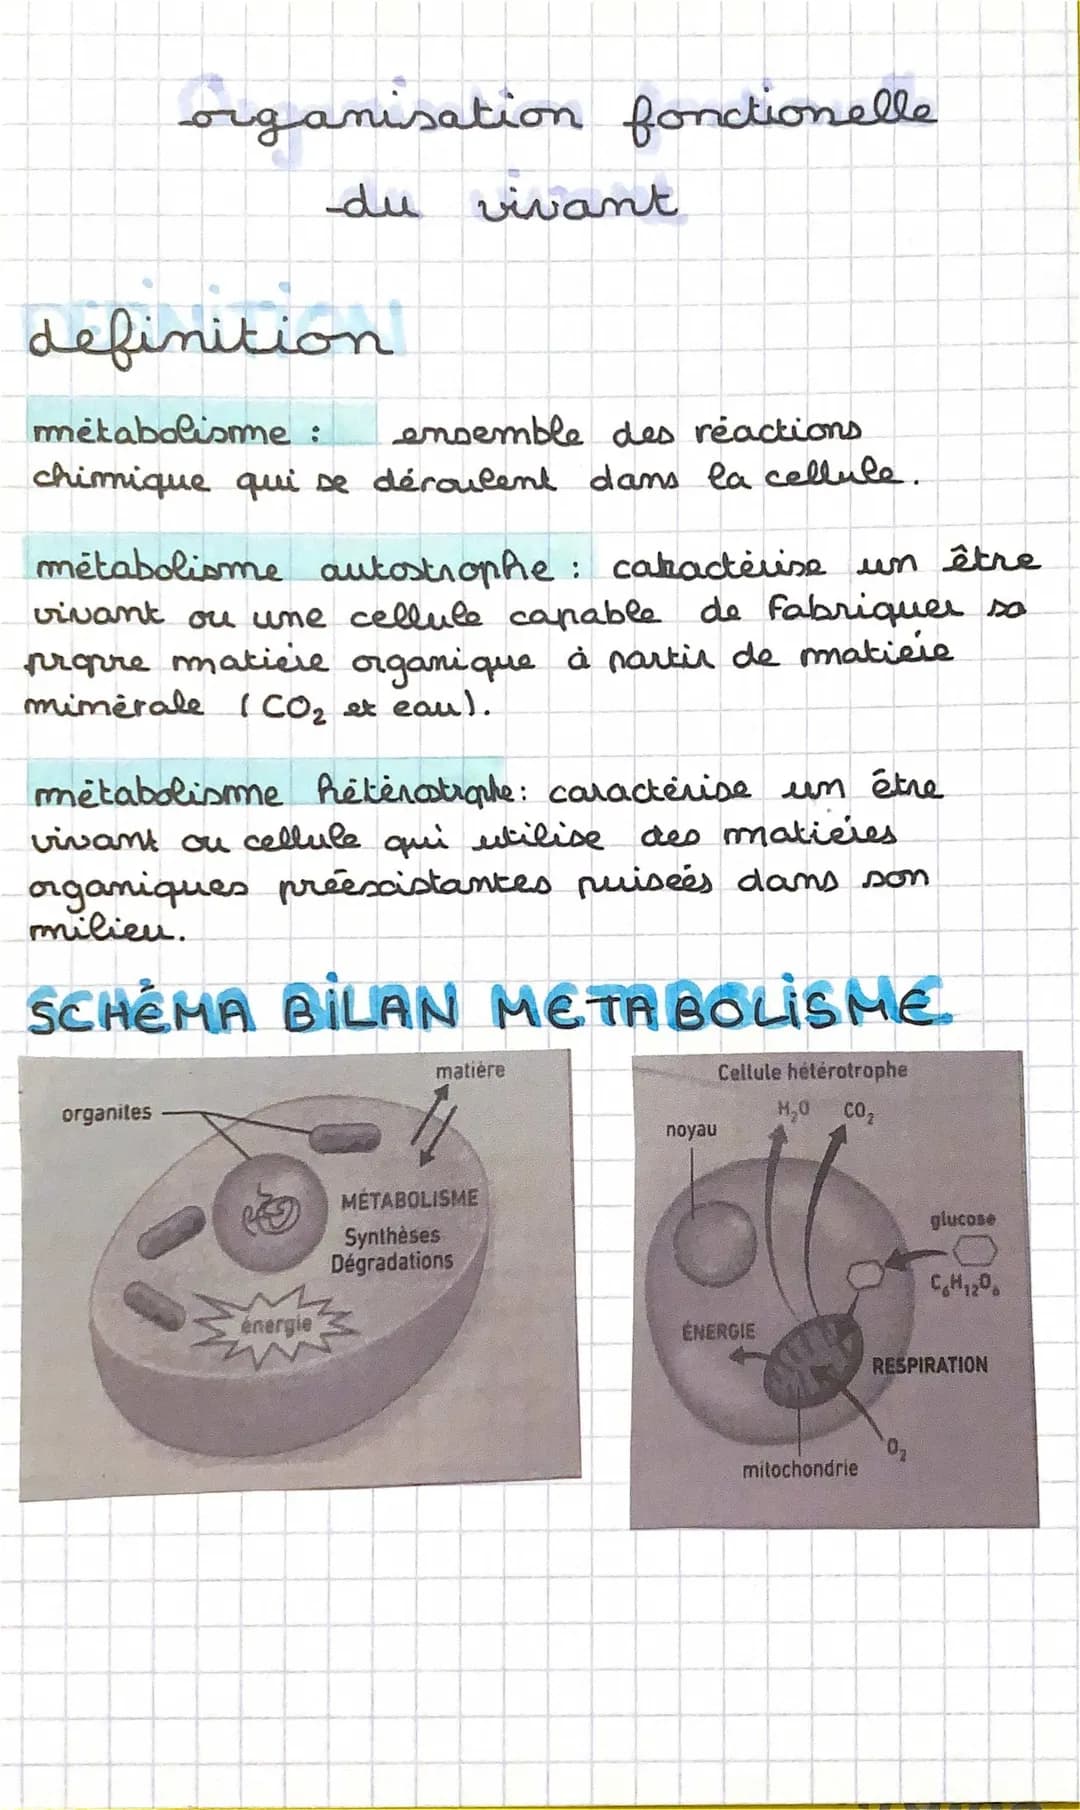 organisation fonctionelle
du vivant
definition
métabolisme : ensemble des réactions
chimique qui se déroulent dans la cellule.
métabolisme autostrophe : caractérise un être
vivant ou une cellule capable de fabriquer sa
propre matiére organique à partir de matiére
minérale (CO₂ et eau).
métabolisme hétérotrophe : caractérise un être
vivant ou cellule qui utilise des matiéres
organiques préexistantes puiseés dans son
milieu.
SCHÉMA BILAN METABOLISME
matière
organites
MÉTABOLISME
Synthèses
Dégradations
énergie
Cellule hétérotrophe
H₂O CO₂
noyau
glucose
C₆H₁₂O₆
ÉNERGIE
RESPIRATION
O₂
mitochondrie